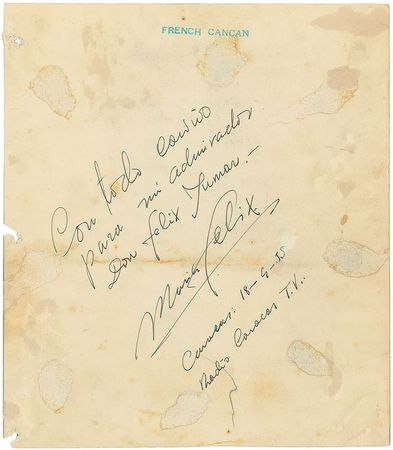 FRENCH CANCAN
Con todo cariño
para mi admirador
Don Felix Tumar.—
Maria Felix
Caracas. 18-9-55
Radio Caracas T.V..